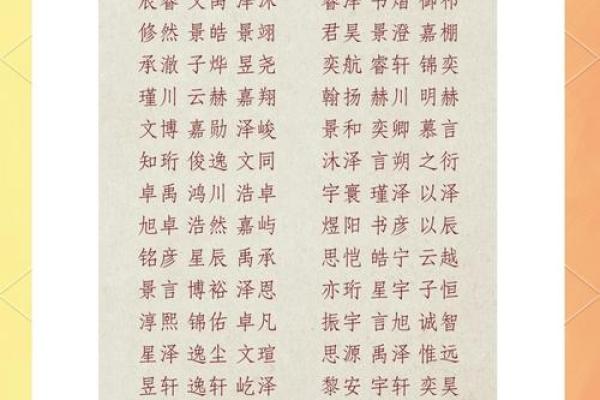 修然 景皓 景翊 君昊 景澄 嘉棚
承澈 子烨 昱尧 奕航 睿轩 锦奕
瑾川 云赫 嘉翔 翰扬 赫川 明赫
文博 嘉勋 泽峻 景和 奕卿 慕言
知珩 俊逸 文同 沐泽 言朔 之衍
卓禹 鸿川 浩卓 宇寰 瑾泽 以泽
旭卓 浩然 嘉屿 煜阳 书彦 以辰
铭彦 星辰 禹承 思恺 皓宁 云越
景言 博裕 泽恩 亦珩 星宇 子恒
淳熙 锦佑 卓凡 振宇 言旭 诚智
星泽 逸尘 文瑄 思源 禹泽 惟远
昱轩 逸轩 屹泽 黎安 宇轩 奕昊